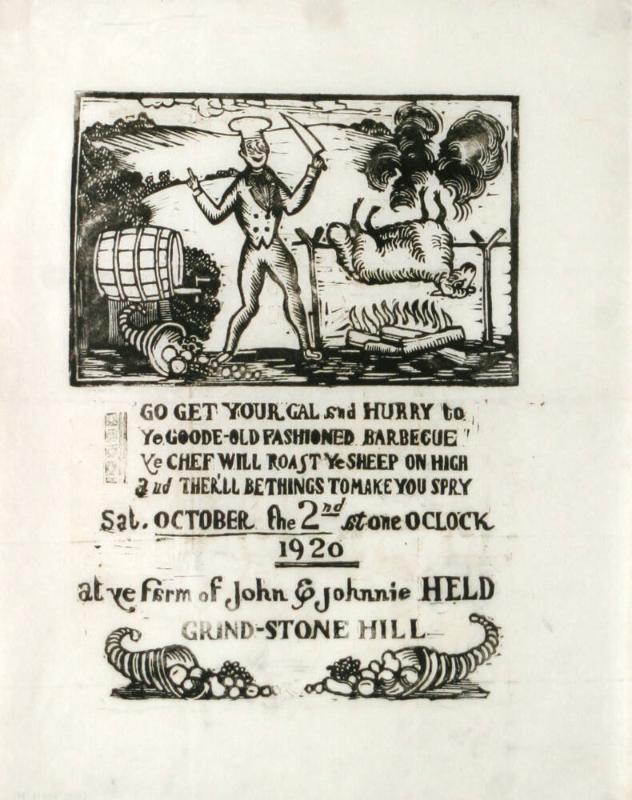 GO GET YOUR GAL and HURRY to
Ye GOODE-OLD FASHIONED BARBECUE"
Ye CHEF WILL ROAST Ye SHEEP ON HIGH
and THER'LL BE THINGS TO MAKE YOU SPRY
Sat. OCTOBER the 2nd at one OCLOCK
1920
at ye farm of John & Johnnie HELD
GRIND-STONE HILL